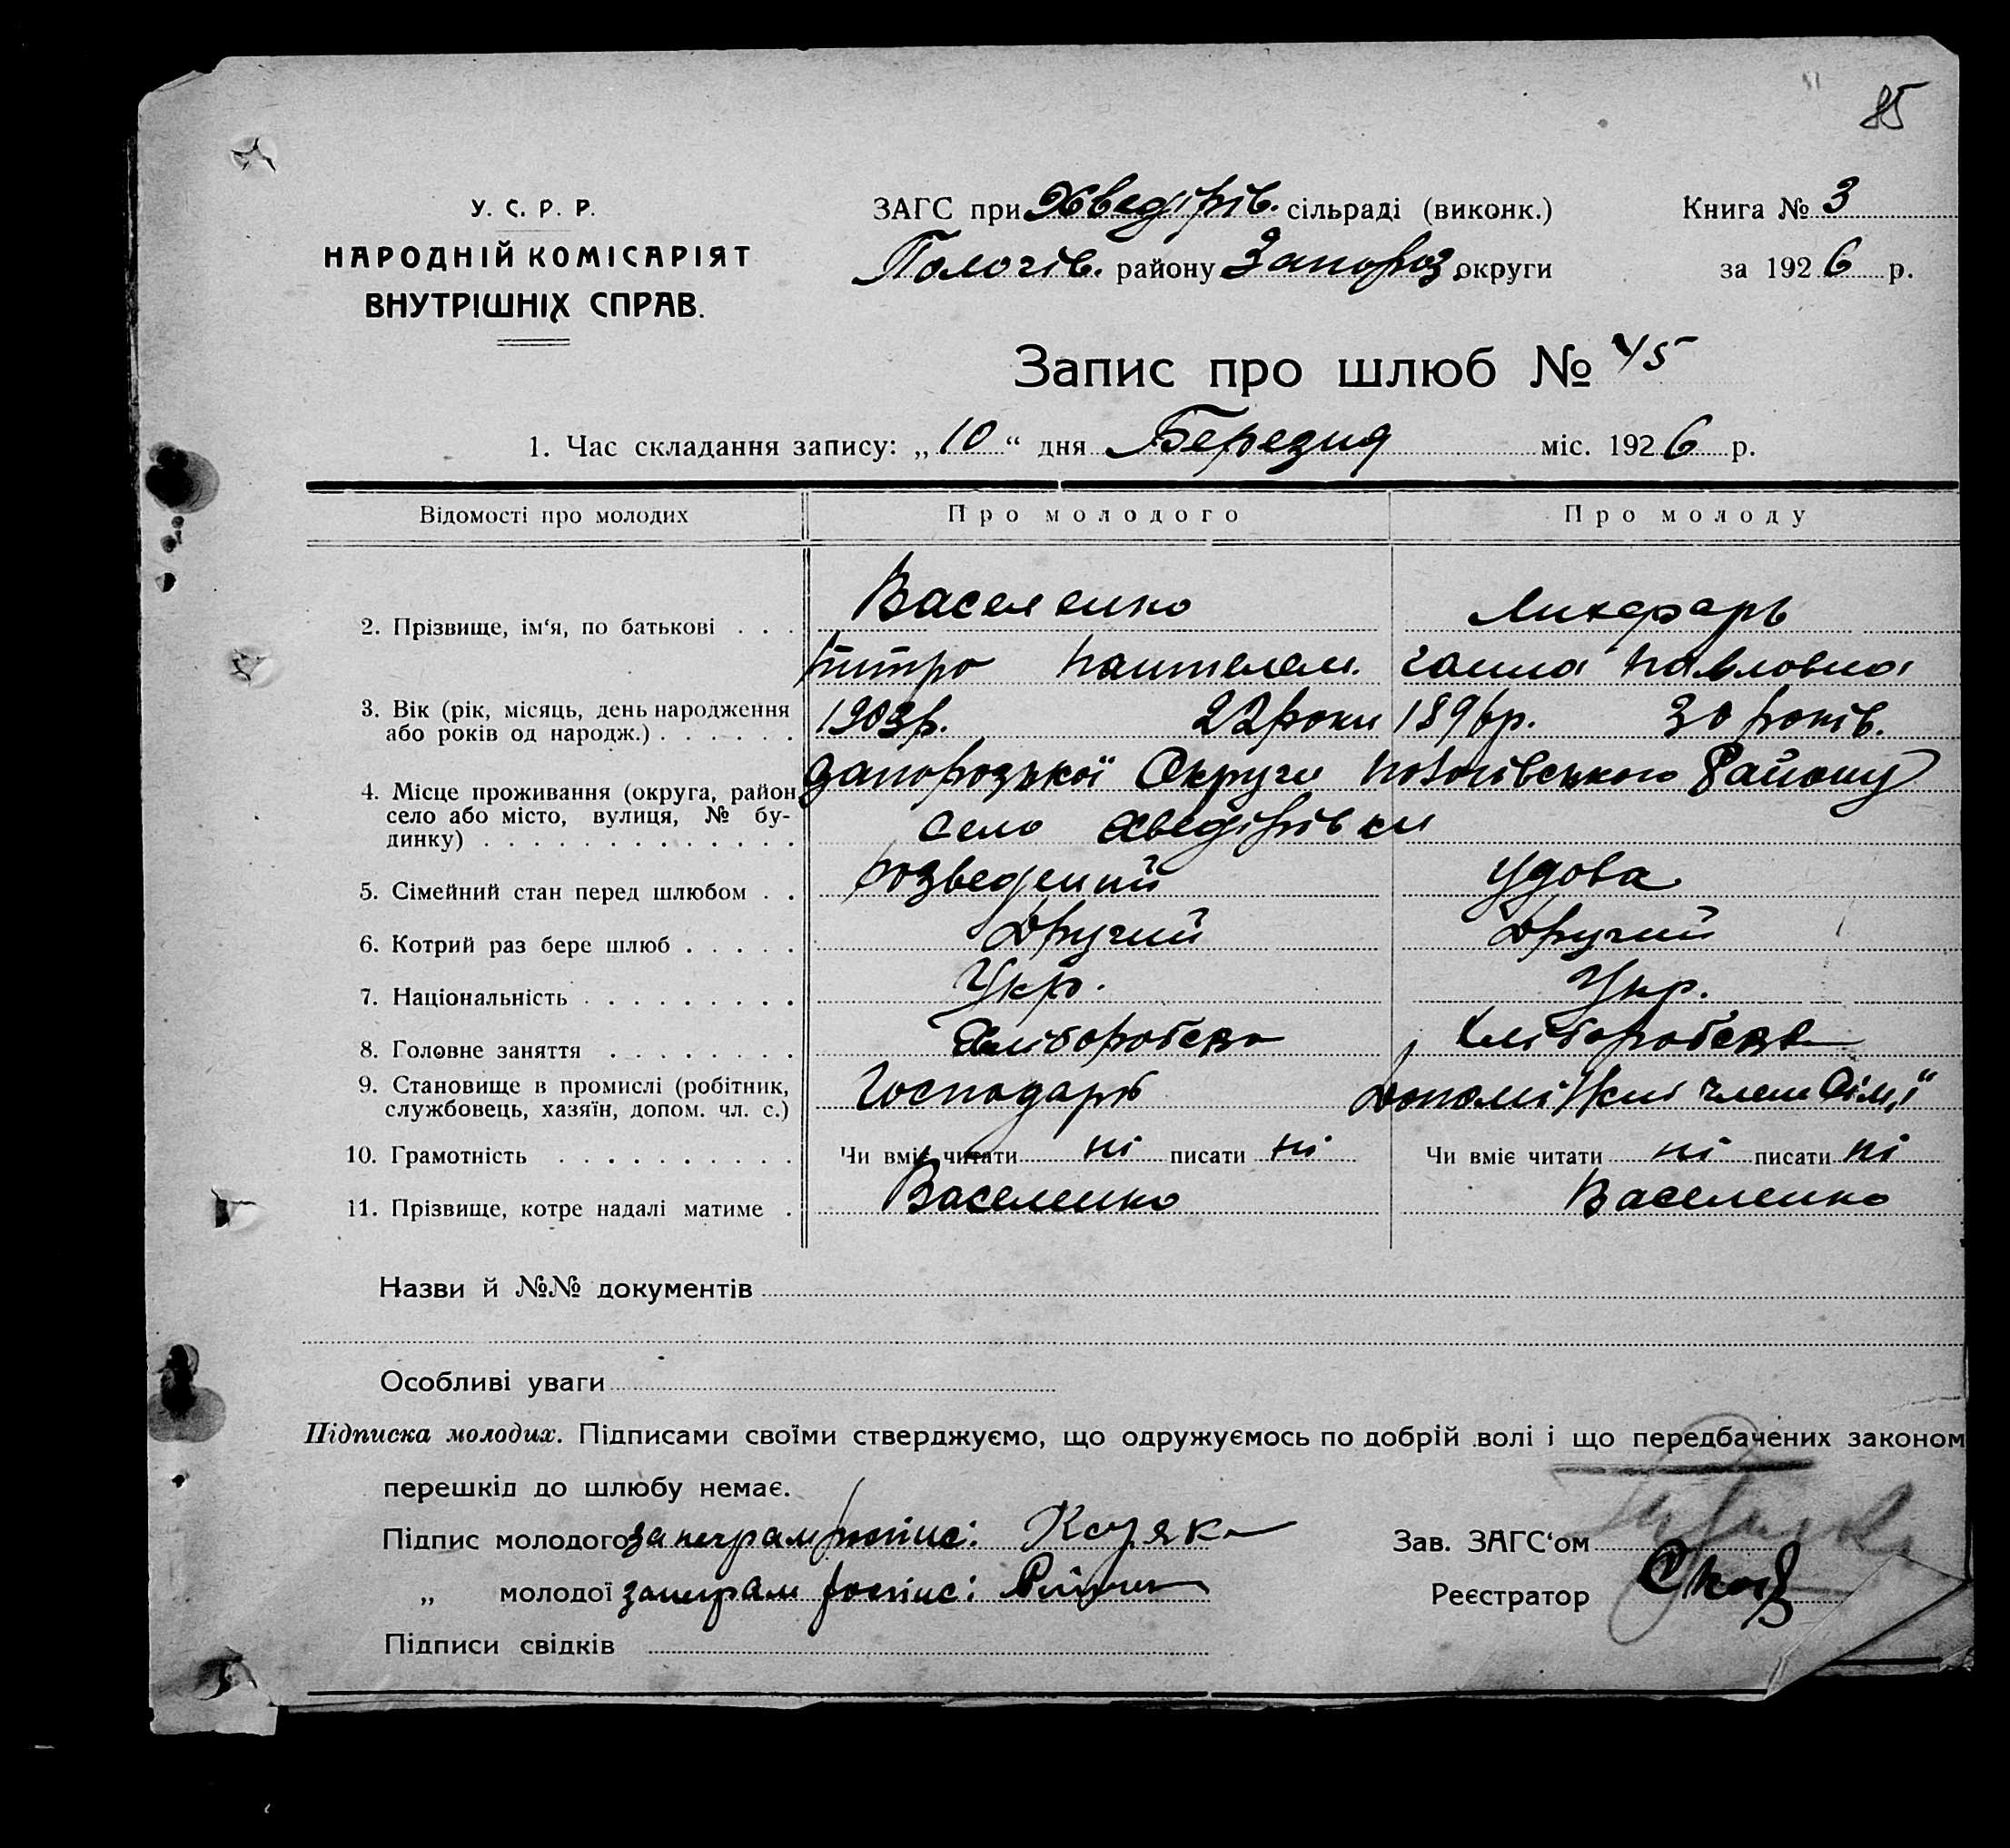 85
У. С. Р. Р.
НАРОДНІЙ КОМІСАРІЯТ
ВНУТРІШНІХ СПРАВ.
ЗАГС при Хведірів. сільраді (виконк.)
Пологів. району Запороз. округи
Книга № 3
за 1926 р.
Запис про шлюб № 45
1. Час складання запису: „10“ дня Березня міс. 1926 р.
Відомості про молодих Про молодого Про молоду
2. Прізвище, ім‘я, по батькові . . . Васеленко
питро пантелем. ганна павловна
3. Вік (рік, місяць, день народження або років од народж.) . . . . . . 1903р. 22 роки 1896р. 30 років.
4. Місце проживання (округа, район, село або місто, вулиця, № будинку) . . . . . . . . . . . . . Запорозької Округи пологівського Району
село Хведірівки
5. Сімейний стан перед шлюбом . . розведений удова
6. Котрий раз бере шлюб . . . . . Другий Другий
7. Національність . . . . . . . . . Укр. Укр.
8. Головне заняття . . . . . . . . Хліборобство хліборобство
9. Становище в промислі (робітник, службовець, хазяїн, допом. чл. с.) Господарь член сім,ї
10. Грамотність . . . . . . . . . . Чи вміє читати ні писати ні Чи вміє читати ні писати ні
11. Прізвище, котре надалі матиме . Васеленко Васеленко
Назви й №№ документів
Особливі уваги
Підписка молодих. Підписами своїми стверджуємо, що одружуємось по добрій волі і що передбачених законом
перешкід до шлюбу немає.
Підпис молодого за неграм росписі:
„ молодої за неграм росписі:
Підписи свідків
Зав. ЗАГС‘ом
Реєстратор